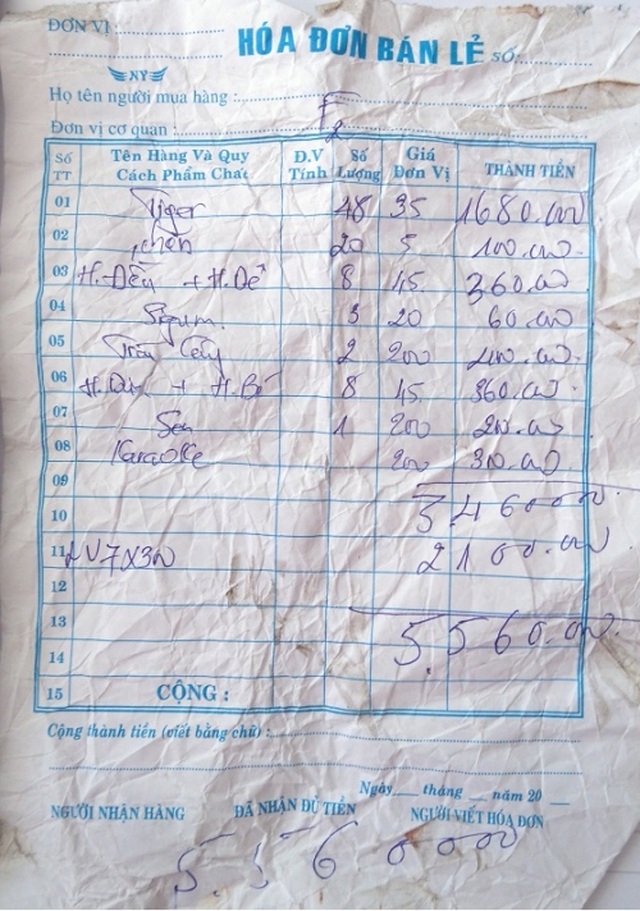 ĐƠN VỊ :
HÓA ĐƠN BÁN LẺ SỐ:
NY
Họ tên người mua hàng :
Đơn vị cơ quan :
F2
Số TT Tên Hàng Và Quy Cách Phẩm Chất Đ.V Tính Số Lượng Giá Đơn Vị THÀNH TIỀN
01 Tiger 48 35 1680.000
02 20 5 100.000
03 8 45 360.000
04 3 20 60.000
05 2 200 400.000
06 8 45 360.000
07 1 200 200.000
08 Karaoke 200 300.000
09
10 3460000
11 7x300 2100.000
12
13
14 5.560.000
15 CỘNG :
Cộng thành tiền (viết bằng chữ) :
Ngày tháng năm 20
NGƯỜI NHẬN HÀNG ĐÃ NHẬN ĐỦ TIỀN NGƯỜI VIẾT HÓA ĐƠN
5.560000